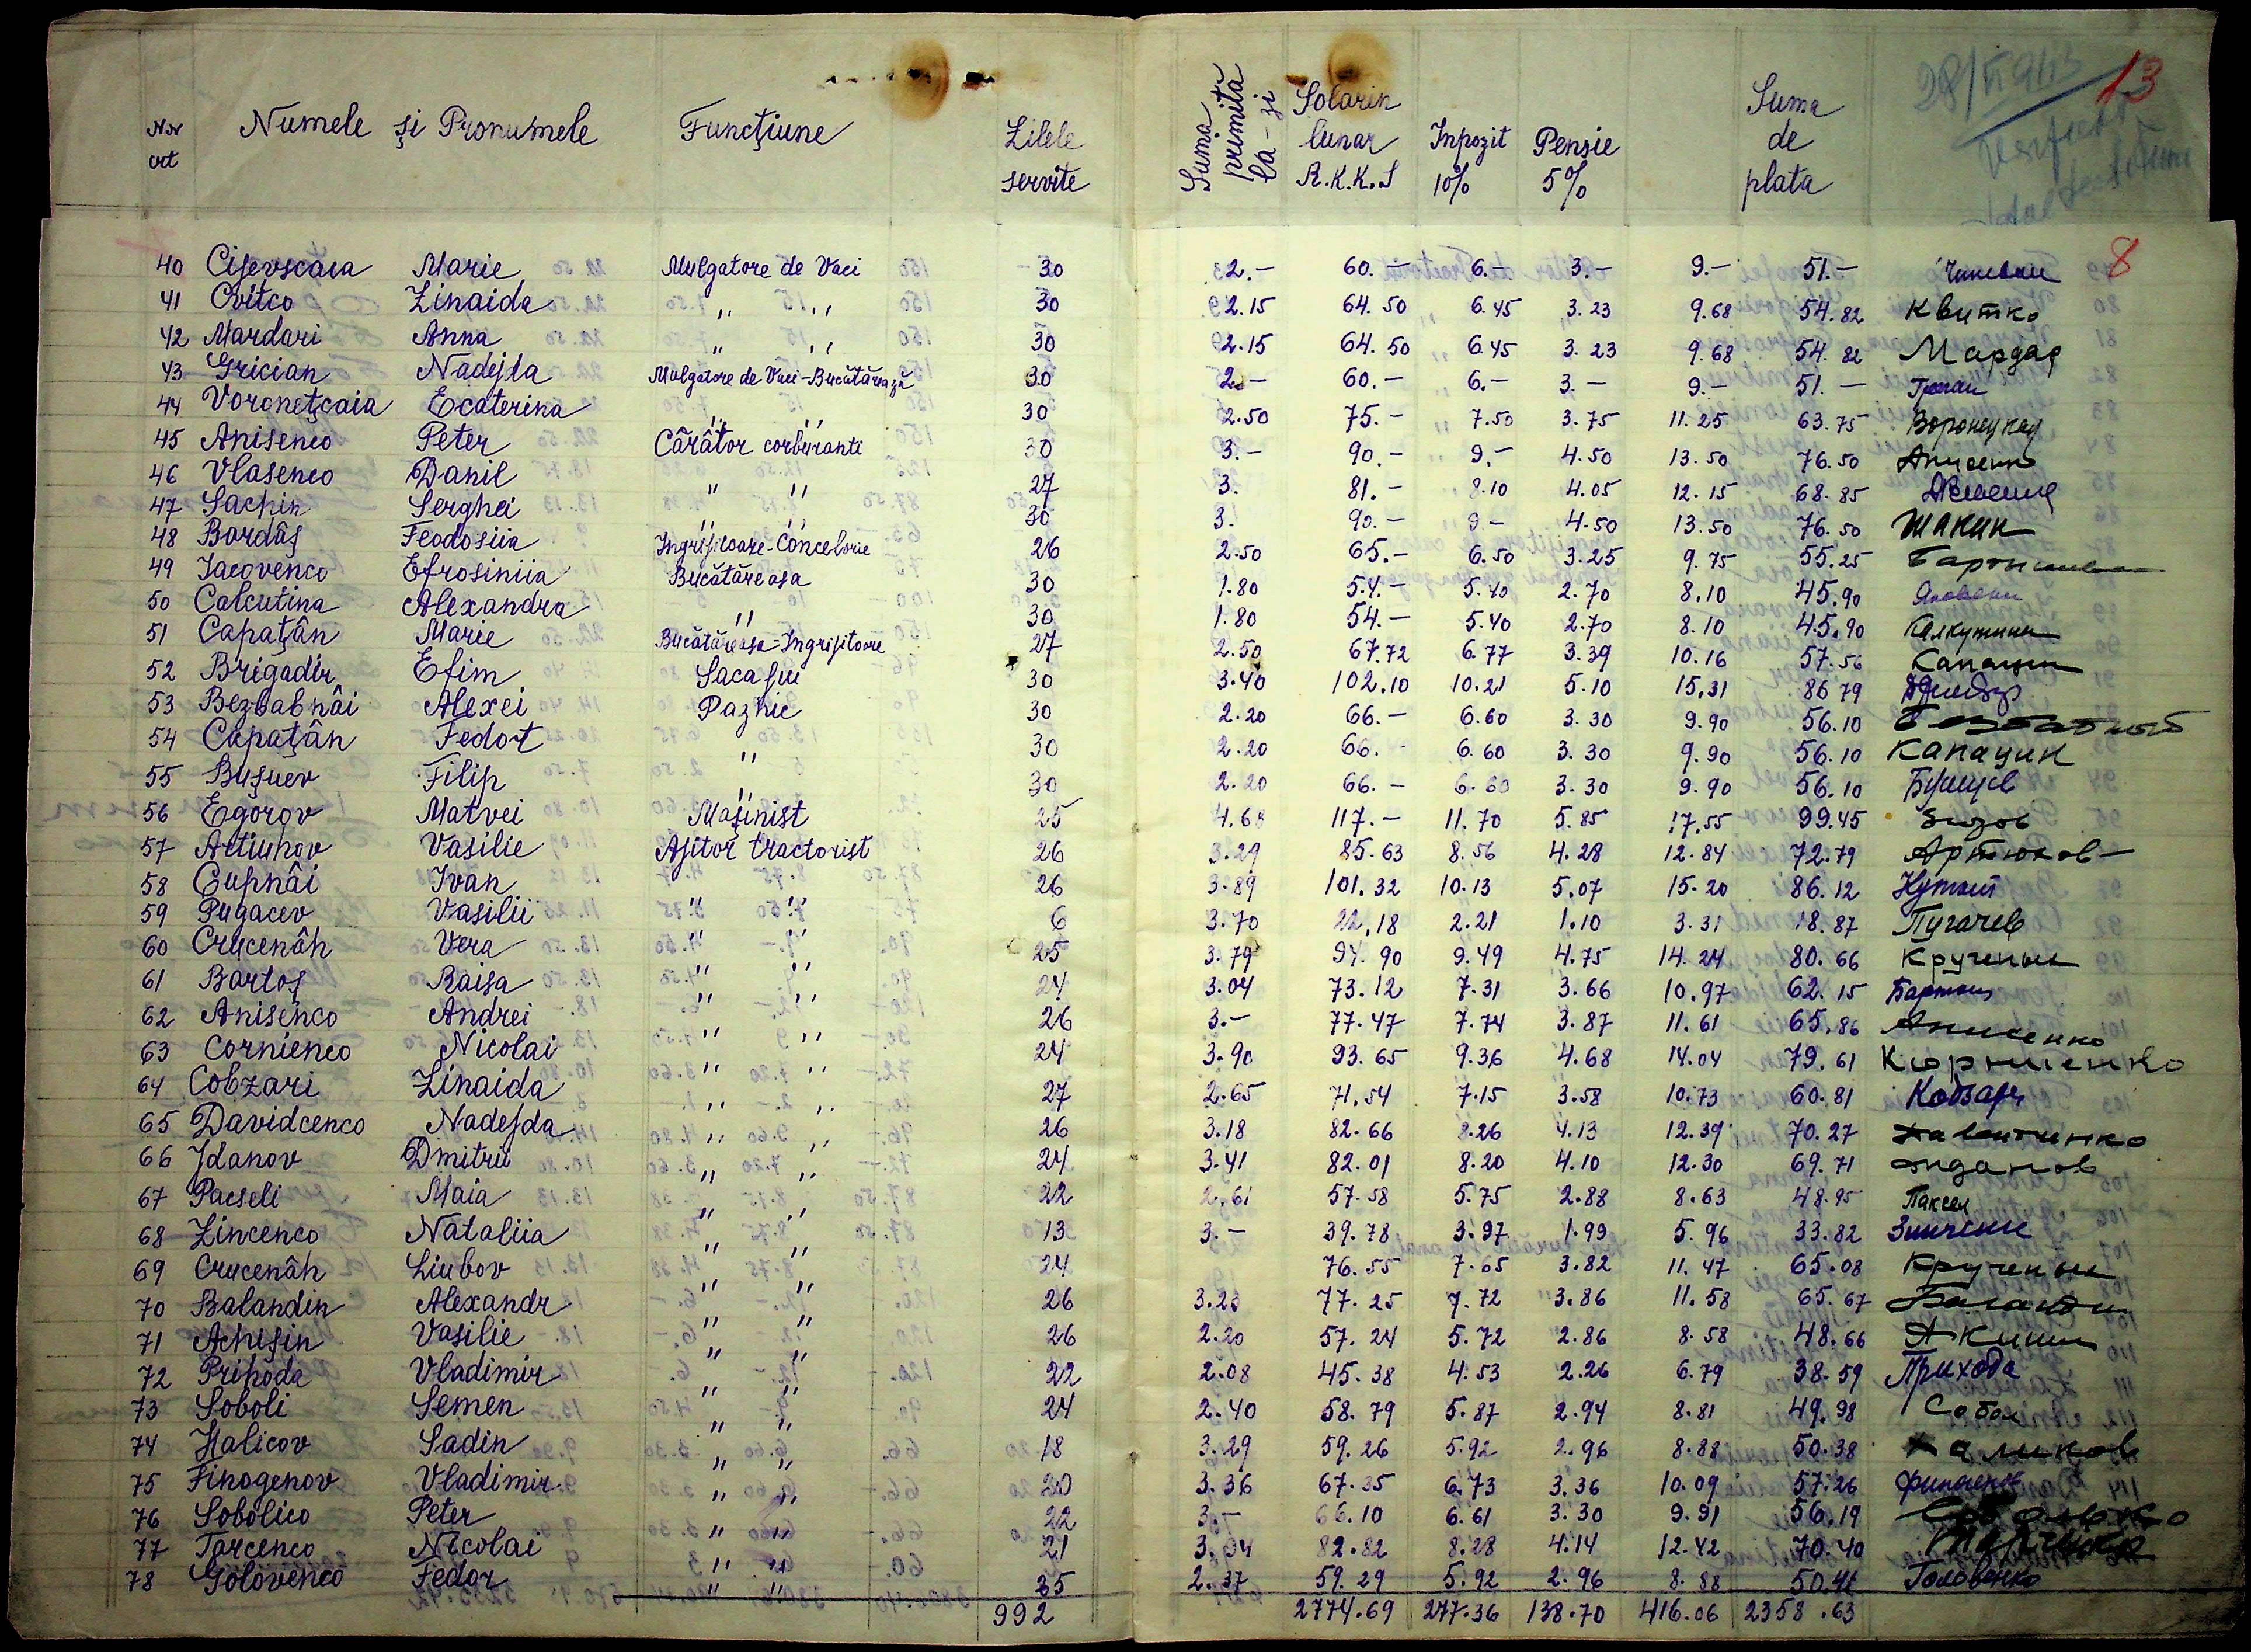 Nr Numele și Pronumele Funcțiune Zilele Suma Solarin Inpozit Pensie Suma 28/ 13
crt servite primită lunar 10% 5% de
la-zi R.K.K.S plata
8
40 Cijevscaia Marie Mulgatore de Vaci 30 2.- 60.- 6.- 3.- 9.- 51.-
41 Cvitco Zinaida " " 30 2.15 64.50 6.45 3.23 9.68 54.82 Квитко
42 Mardari Anna " " 30 2.15 64.50 6.45 3.23 9.68 54.82 Мардар
43 Grician Nadejda Mulgatore de Vaci-Bucătărează 30 2.- 60.- 6.- 3.- 9.- 51.-
44 Voronețcaia Ecaterina " " 30 2.50 75.- 7.50 3.75 11.25 63.75 Воронецкая
45 Anisenco Peter Cârâtor corburanti 30 3.- 90.- 9.- 4.50 13.50 76.50 Анисенко
46 Vlasenco Danil " " 27 3. 81.- 8.10 4.05 12.15 68.85
47 Sachin Serghei " " 30 3. 90.- 9- 4.50 13.50 76.50 Шакин
48 Bordâș Feodosiia Ingrijitoare-Concelorie 26 2.50 65.- 6.50 3.25 9.75 55.25
49 Iacovenco Efrosiniia Bucătăreasa 30 1.80 54.- 5.40 2.70 8.10 45.90
50 Calcutina Alexandra " 30 1.80 54.- 5.40 2.70 8.10 45.90 Калкутина
51 Capațân Marie Bucătăreasa-Ingrijitoare 27 2.50 67.72 6.77 3.39 10.16 57.56 Капацин
52 Brigadir Efim Sacagiu 30 3.40 102.10 10.21 5.10 15.31 86 79
53 Bezbabnâi Alexei Paznic 30 2.20 66.- 6.60 3.30 9.90 56.10
54 Capațân Fedot " 30 2.20 66.- 6.60 3.30 9.90 56.10 Капацин
55 Bușuev Filip " 30 2.20 66.- 6.60 3.30 9.90 56.10 Бушуев
56 Egorov Matvei Mașinist 25 4.68 117.- 11.70 5.85 17.55 99.45
57 Artiuhov Vasilie Ajitor tractorist 26 3.29 85.63 8.56 4.28 12.84 72.79 Артюхов
58 Cupnâi Ivan " " 26 3.89 101.32 10.13 5.07 15.20 86.12
59 Pugacev Vasilii " " 6 3.70 22.18 2.21 1.10 3.31 18.87 Пугачев
60 Crucenâh Vera " " 25 3.79 94.90 9.49 4.75 14.24 80.66 Крученых
61 Bartoș Raisa " " 24 3.04 73.12 7.31 3.66 10.97 62.15 Бартош
62 Anisenco Andrei " " 26 3.- 77.47 7.74 3.87 11.61 65.86 Анисенко
63 Cornienco Nicolai " " 24 3.90 93.65 9.36 4.68 14.04 79.61 Корниенко
64 Cobzari Zinaida " " 27 2.65 71.54 7.15 3.58 10.73 60.81 Кобзарь
65 Davidcenco Nadejda " " 26 3.18 82.66 8.26 4.13 12.39 70.27
66 Jdanov Dmitrii " " 24 3.41 82.01 8.20 4.10 12.30 69.71 Жданов
67 Pacseli Maia " " 22 2.61 57.58 5.75 2.88 8.63 48.95 Паксел
68 Zincenco Nataliia " " 13 3.- 39.78 3.97 1.99 5.96 33.82
69 Crucenâh Liubov " " 24 76.55 7.65 3.82 11.47 65.08 Крученых
70 Balandin Alexandr " " 26 3.20 77.25 7.72 3.86 11.58 65.67
71 Achișin Vasilie " " 26 2.20 57.24 5.72 2.86 8.58 48.66 Акишин
72 Prihoda Vladimir " " 22 2.08 45.38 4.53 2.26 6.79 38.59 Прихода
73 Soboli Semen " " 24 2.40 58.79 5.87 2.94 8.81 49.98 Собол
74 Halicov Sadin " " 18 3.29 59.26 5.92 2.96 8.88 50.38 Халиков
75 Finogenov Vladimir " " 20 3.36 67.35 6.73 3.36 10.09 57.26 Финогенов
76 Sobolico Peter " " 22 3.- 66.10 6.61 3.30 9.91 56.19 Соболько
77 Tarcenco Nicolai " " 21 3.94 82.82 8.28 4.14 12.42 70.40
78 Golovenco Fedor " " 25 2.37 59.29 5.92 2.96 8.88 50.41 Головенко
992 2774.69 277.36 138.70 416.06 2358.63